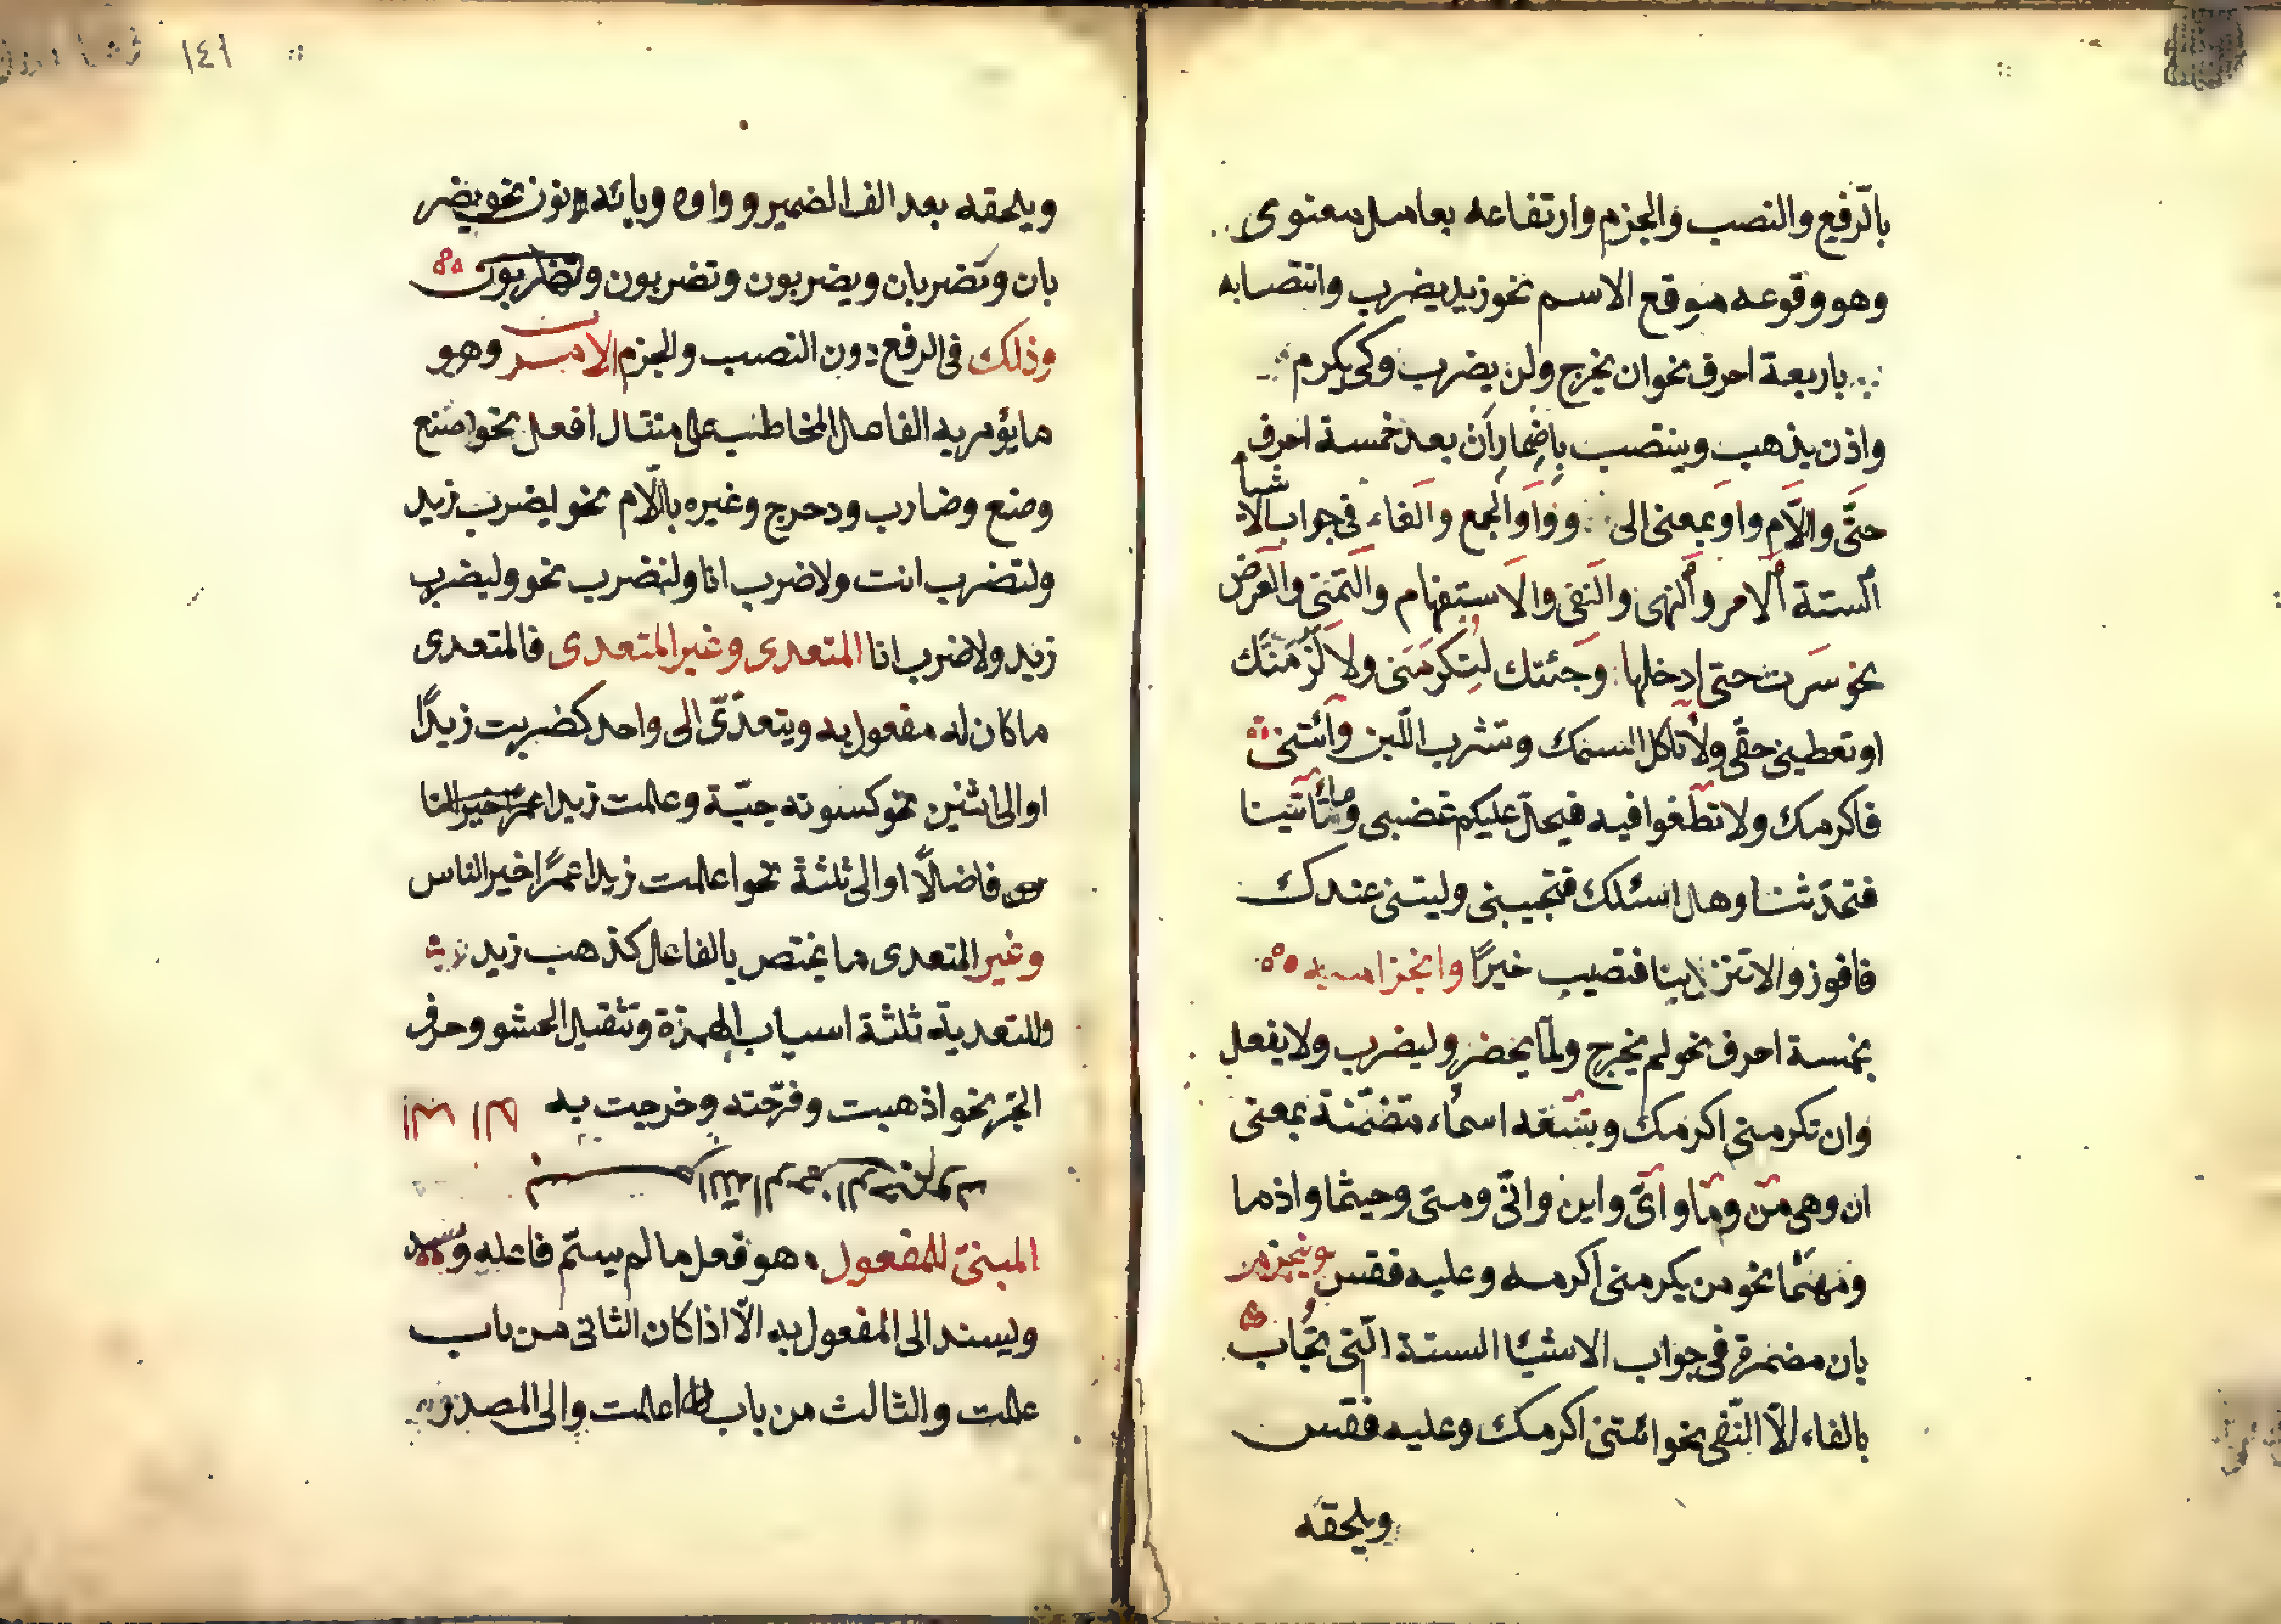 بالرفع والنصب والجزم وارتفاعه بعامل معنوى
وهو وقوعه موقع الاسم نحو زيد يضرب وانتصابه
باربعة احرف نحو ان يخرج ولن يضرب وكى يكرم
واذن يذهب وينتصب بِاِضْمارِ اَنْ بعد خمسة احرف
حتَّى واللّام واو بمعنى الى وواو الجمع والفاء فى جواب الاشيا
الستة الامر والنهى والنفى والاستفهام والتمنى والعرض
نحو سرت حتى ادخلها وجئتك لتكرمنى ولالزمنّك
او تعطينى حقى ولا تاكل السمك وتشرب اللّبن وائتنى
فاكرمك ولا تطغوا فيه فيحلّ عليكم غضبى وما تأتينا
فتحدّثنا وهل اسئلك فتجيبنى وليتنى عندك
فافوز والا تنزل بنا فتصيب خيرًا وانجزامه
بخمسة احرف نحو لم يخرج ولمّا يحضر وليضرب ولا يفعل
وان تكرمنى اكرمك وبتسعة اسماء متضمّنة بمعنى
ان وهى من وما واىّ واين وانّى ومتى وحيثما واذما
ومهما نحو من يكرمنى اكرمه وعليه فقس وينجزم
بان مضمرة فى جواب الاشيا الستة الّتى تُجاب
بالفاء الّا النّفى نحو ائتنى اكرمك وعليه فقس
ويلحقه
١٤١
ويلحقه بعد الف الضمير وواوه ويائه نون نحو يضر
بان وتضربان ويضربون وتضربون
وذلك فى الرفع دون النصب والجزم الامر وهو
ما يؤمر به الفاعل المخاطب على مثال افعل نحو اصنع
وضع وضارب ودحرج وغيره باللّام نحو ليضرب زيد
ولتضرب انت ولاضرب انا ولنضرب نحو وليضرب
زيد ولاضرب انا المتعدى وغير المتعدى فالمتعدى
ما كان له مفعول به ويتعدّى الى واحد كضربت زيدًا
او الى اثنين نحو كسوته جبّة وعلمت زيدا
فاضلًا او الى ثلثة نحو اعلمت زيدا عمرًا خير الناس
وغير المتعدى ما يختص بالفاعل كذهب زيد
وللتعدية ثلثة اسباب الهمزة وتثقيل الحشو وحرف
الجر نحو اذهبت وفرّحته وخرجت به
المبنىّ للمفعول هو فعل ما لم يسمّ فاعله
ويسند الى المفعول به الّا اذا كان الثانى من باب
علمت والثالث من باب اعلمت والى المصدر